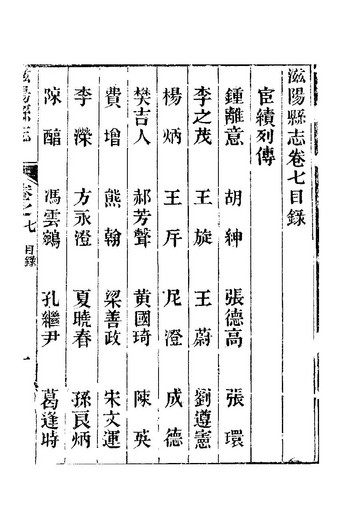 滋陽縣志卷七目錄
宦績列傳
鍾離意 胡紳 張德高 張環
李之茂 王旋 王蔚 劉遵憲
楊炳 王斥 尼澄 成德
樊吉人 郝芳聲 黃國琦 陳英
費增 熊翰 梁善政 宋文運
李濚 方永澄 夏曉春 孫良炳
陳醕 馮雲鵷 孔繼尹 葛逢時
滋陽縣志 卷之七 目錄 一